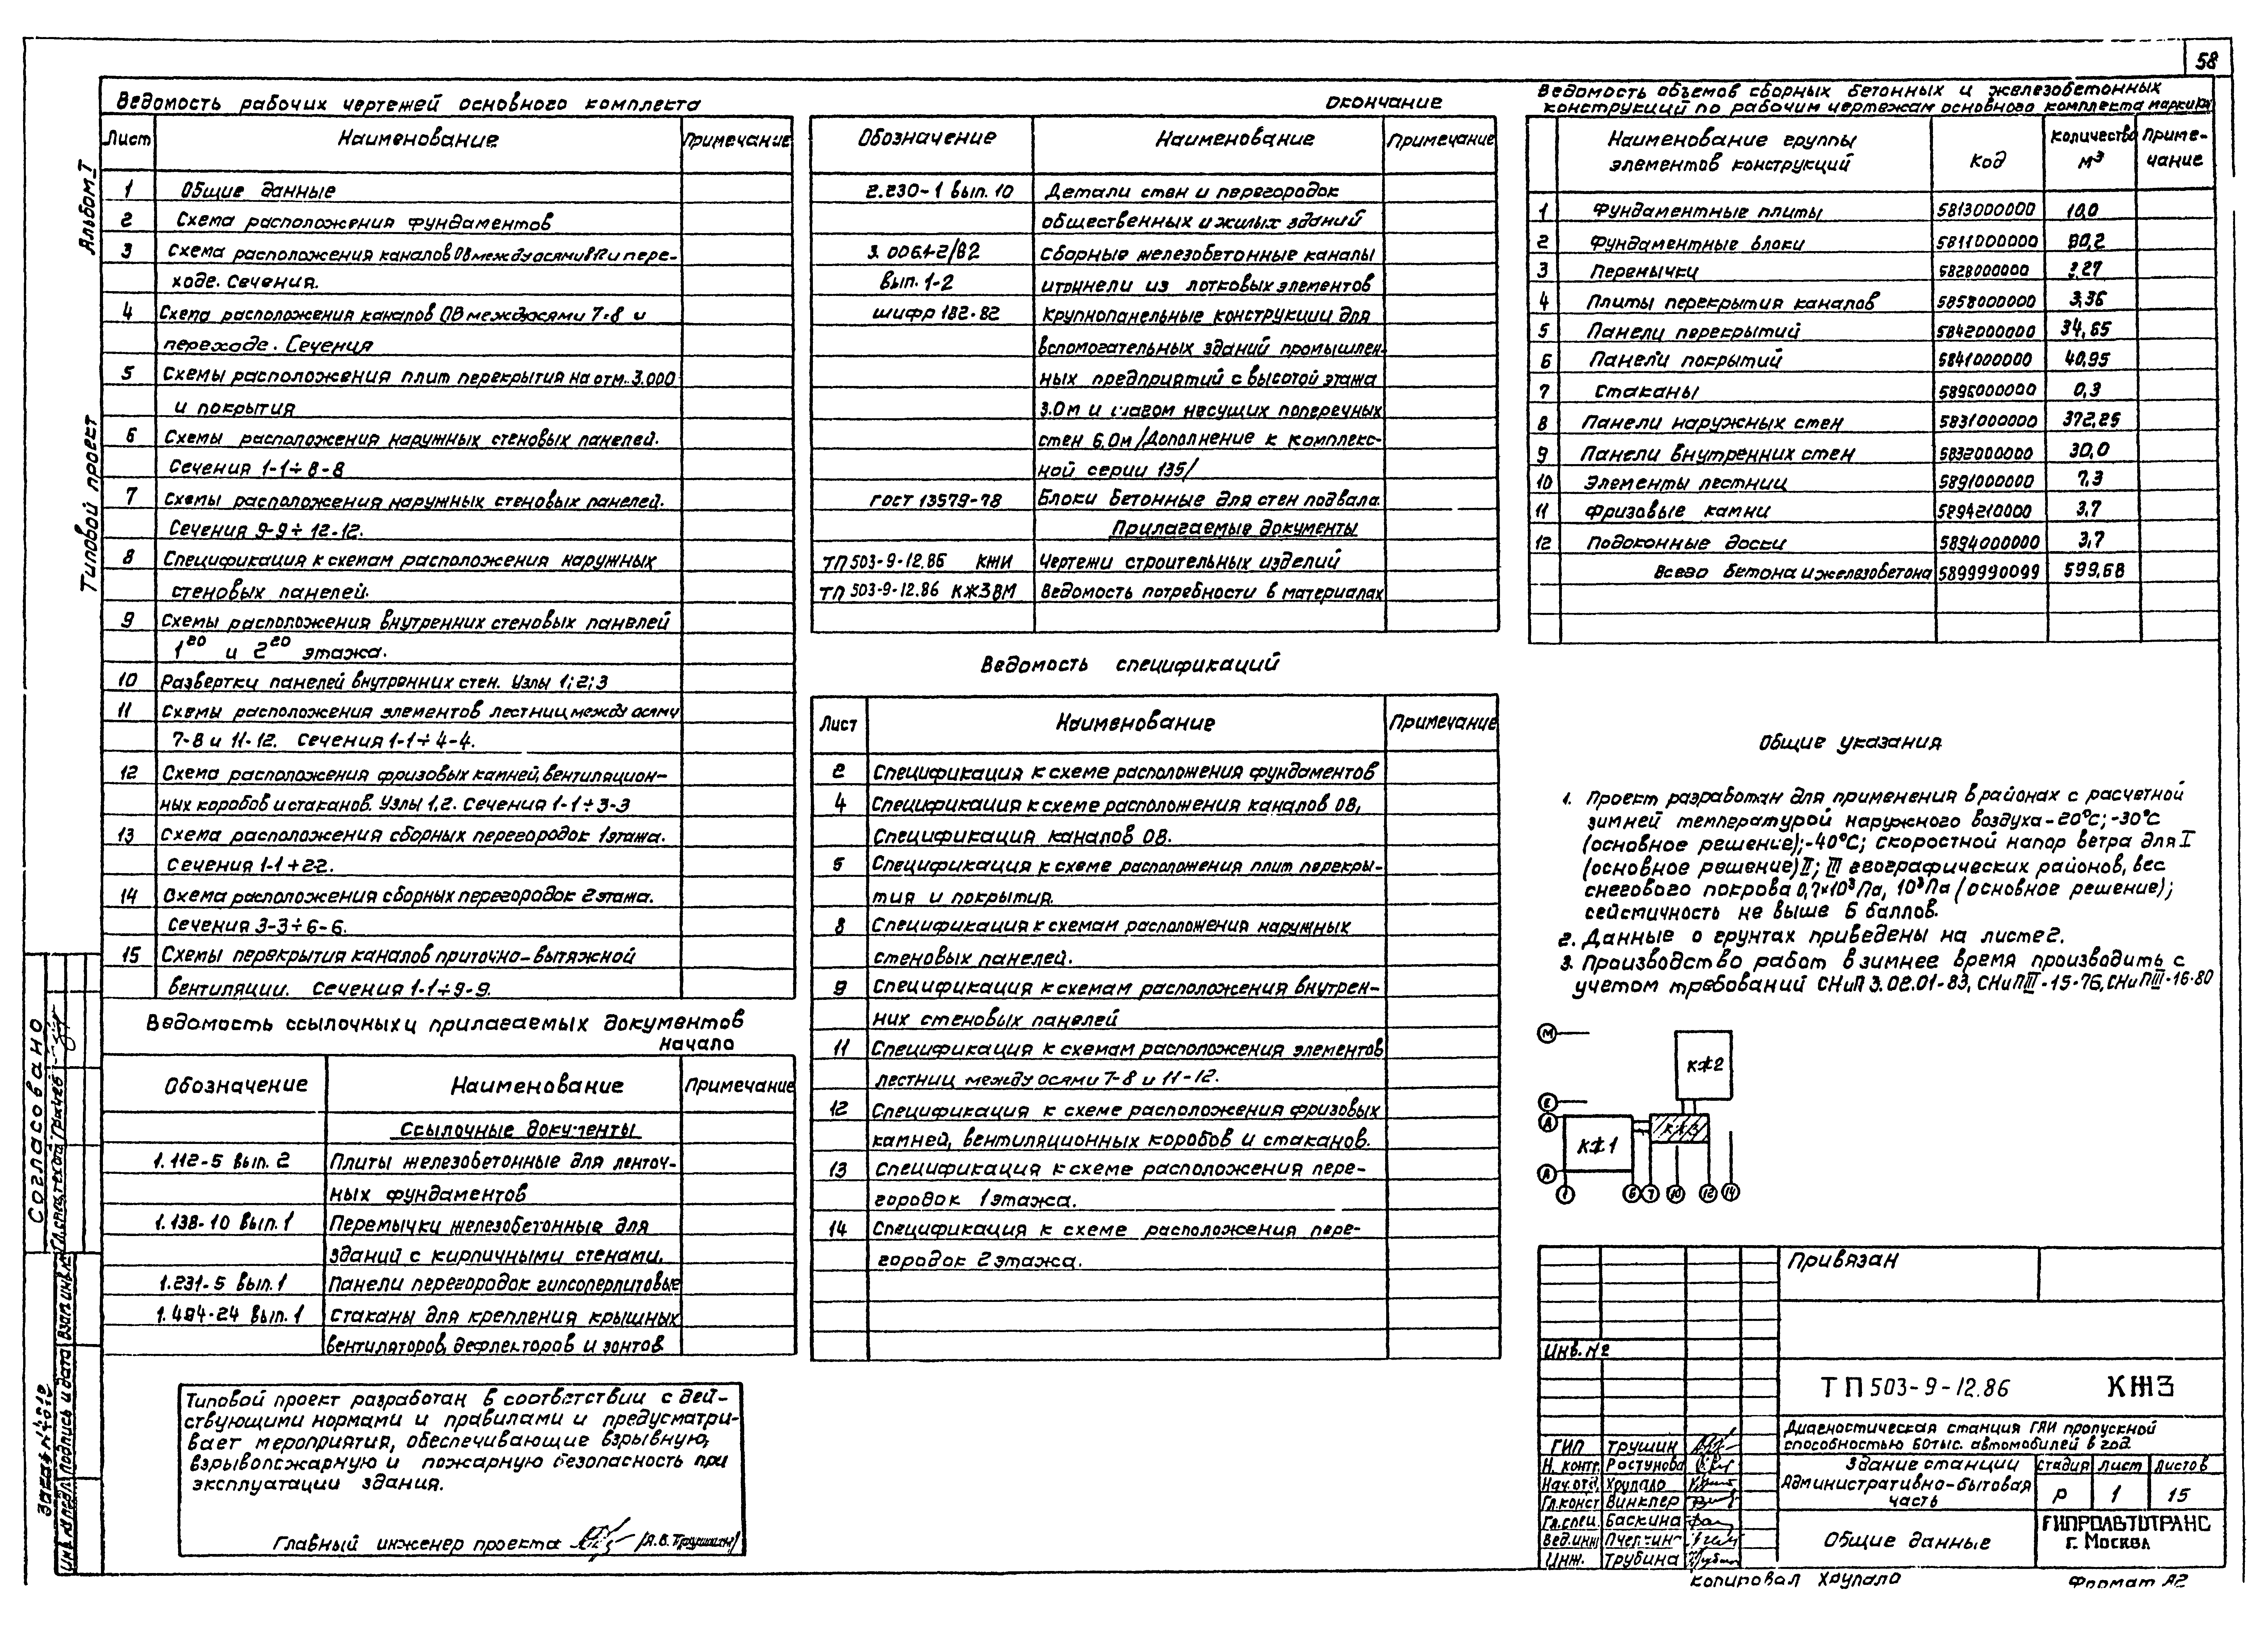 58
Альбом I
Типовой проект
Ведомость рабочих чертежей основного комплекта
Лист Наименование Примечание
1 Общие данные
2 Схема расположения фундаментов
3 Схема расположения каналов ОВ между осями 8-12 и пере-
ходе. Сечения.
4 Схема расположения каналов ОВ между осями 7-8 и
переходе. Сечения
5 Схемы расположения плит перекрытия на отм. 3.000
и покрытия
6 Схемы расположения наружных стеновых панелей.
Сечения 1-1÷8-8
7 Схемы расположения наружных стеновых панелей.
Сечения 9-9÷12-12.
8 Спецификация к схемам расположения наружных
стеновых панелей.
9 Схемы расположения внутренних стеновых панелей
1го и 2го этажа.
10 Развертки панелей внутренних стен. Узлы 1; 2; 3
11 Схемы расположения элементов лестниц между осями
7-8 и 11-12. Сечения 1-1÷4-4.
12 Схема расположения фризовых камней, вентиляцион-
ных коробов и стаканов. Узлы 1,2. Сечения 1-1÷3-3
13 Схема расположения сборных перегородок 1 этажа.
Сечения 1-1÷2-2.
14 Схема расположения сборных перегородок 2 этажа.
Сечения 3-3÷6-6.
15 Схемы перекрытия каналов приточно-вытяжной
вентиляции. Сечения 1-1÷9-9.
Ведомость ссылочных и прилагаемых документов
начало
Обозначение Наименование Примечание
Ссылочные документы
1.112-5 вып. 2 Плиты железобетонные для ленточ-
ных фундаментов
1.138-10 вып. 1 Перемычки железобетонные для
зданий с кирпичными стенами.
1.231-5 вып. 1 Панели перегородок гипсоперлитовые
1.494-24 вып. 1 Стаканы для крепления крышных
вентиляторов, дефлекторов и зонтов
Типовой проект разработан в соответствии с дей-
ствующими нормами и правилами и предусматри-
вает мероприятия, обеспечивающие взрывную,
взрывопожарную и пожарную безопасность при
эксплуатации здания.
Главный инженер проекта (А.В. Трушин)
окончание
Обозначение Наименование Примечание
2.230-1 вып. 10 Детали стен и перегородок
общественных и жилых зданий
3.006.1-2/82 Сборные железобетонные каналы
вып. 1-2 и тоннели из лотковых элементов
шифр 182-82 Крупнопанельные конструкции для
вспомогательных зданий промышлен-
ных предприятий с высотой этажа
3.0м и шагом несущих поперечных
стен 6,0м /Дополнение к комплекс-
ной серии 135/
ГОСТ 13579-78 Блоки бетонные для стен подвала.
Прилагаемые документы
ТП 503-9-12.86 КЖИ Чертежи строительных изделий
ТП 503-9-12.86 КЖ3ВМ Ведомость потребности в материалах
Ведомость спецификаций
Лист Наименование Примечание
2 Спецификация к схеме расположения фундаментов
4 Спецификация к схеме расположения каналов ОВ,
Спецификация каналов ОВ.
5 Спецификация к схеме расположения плит перекры-
тия и покрытия.
8 Спецификация к схемам расположения наружных
стеновых панелей.
9 Спецификация к схемам расположения внутрен-
них стеновых панелей
11 Спецификация к схемам расположения элементов
лестниц между осями 7-8 и 11-12.
12 Спецификация к схеме расположения фризовых
камней, вентиляционных коробов и стаканов.
13 Спецификация к схеме расположения пере-
городок 1 этажа.
14 Спецификация к схеме расположения пере-
городок 2 этажа.
Ведомость объемов сборных бетонных и железобетонных
конструкций по рабочим чертежам основного комплекта марки КЖ
Наименование группы элементов конструкций Код Количество м³ Приме-чание
1 Фундаментные плиты 5813000000 10,0
2 Фундаментные блоки 5811000000 90,2
3 Перемычки 5828000000 2,27
4 Плиты перекрытия каналов 5858000000 3,36
5 Панели перекрытий 5842000000 34,65
6 Панели покрытий 5841000000 40,95
7 Стаканы 5896000000 0,3
8 Панели наружных стен 5831000000 372,25
9 Панели внутренних стен 5832000000 30,0
10 Элементы лестниц 5891000000 7,3
11 Фризовые камни 5894210000 3,7
12 Подоконные доски 5894000000 3,7
Всего бетона и железобетона 5899990099 599,68
Общие указания
1. Проект разработан для применения в районах с расчетной
зимней температурой наружного воздуха -20°С; -30°С
(основное решение); -40°С; скоростной напор ветра для I
(основное решение) II; III географических районов, вес
снегового покрова 0,7×10³Па, 10³Па (основное решение);
сейсмичность не выше 6 баллов.
2. Данные о грунтах приведены на листе 2.
3. Производство работ в зимнее время производить с
учетом требований СНиП 3.02.01-83, СНиП III-15-76, СНиП III-16-80
М
КЖ2
Е
Д
КЖ1 КЖ3
А
1 6 7 10 12 14
Привязан
Инв. №
ТП 503-9-12.86 КЖ3
Диагностическая станция ГАИ пропускной
способностью 60 тыс. автомобилей в год
ГИП Трушин
Н. контр. Ростунова
Нач. отд. Хрупало
Гл. конст. Винклер
Гл. спец. Баскина
Вед. инж
Инж. Трубина
Здание станции
Административно-бытовая
часть
Стадия Лист Листов
Р 1 15
Общие данные
ГИПРОАВТОТРАНС
г. Москва
Копировал Хрупало
Формат А2
Согласовано
Взам. инв. №
Подпись и дата
Инв. № подл.